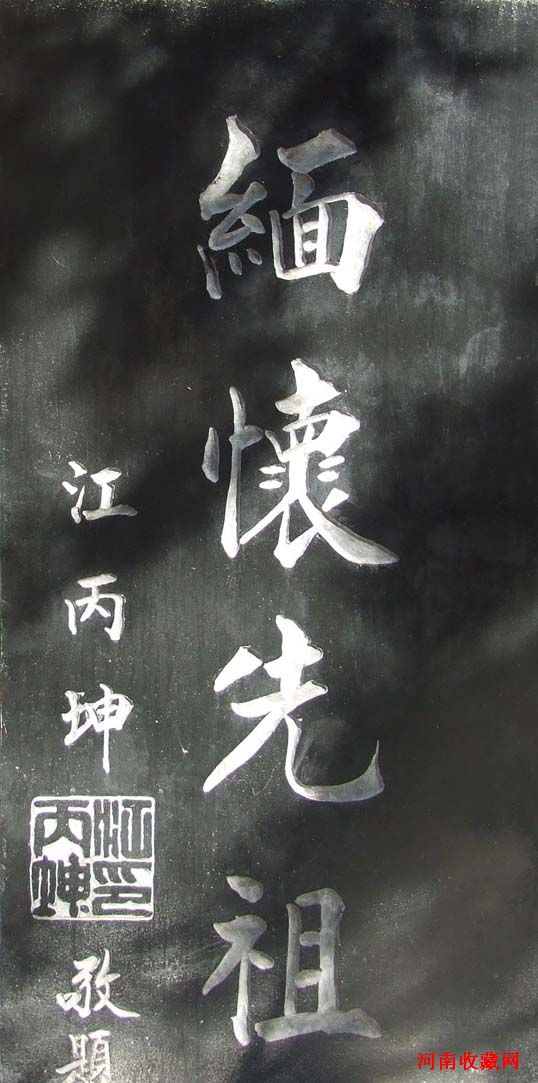 緬懷先祖
江丙坤
江丙坤印
敬題
河南收藏网